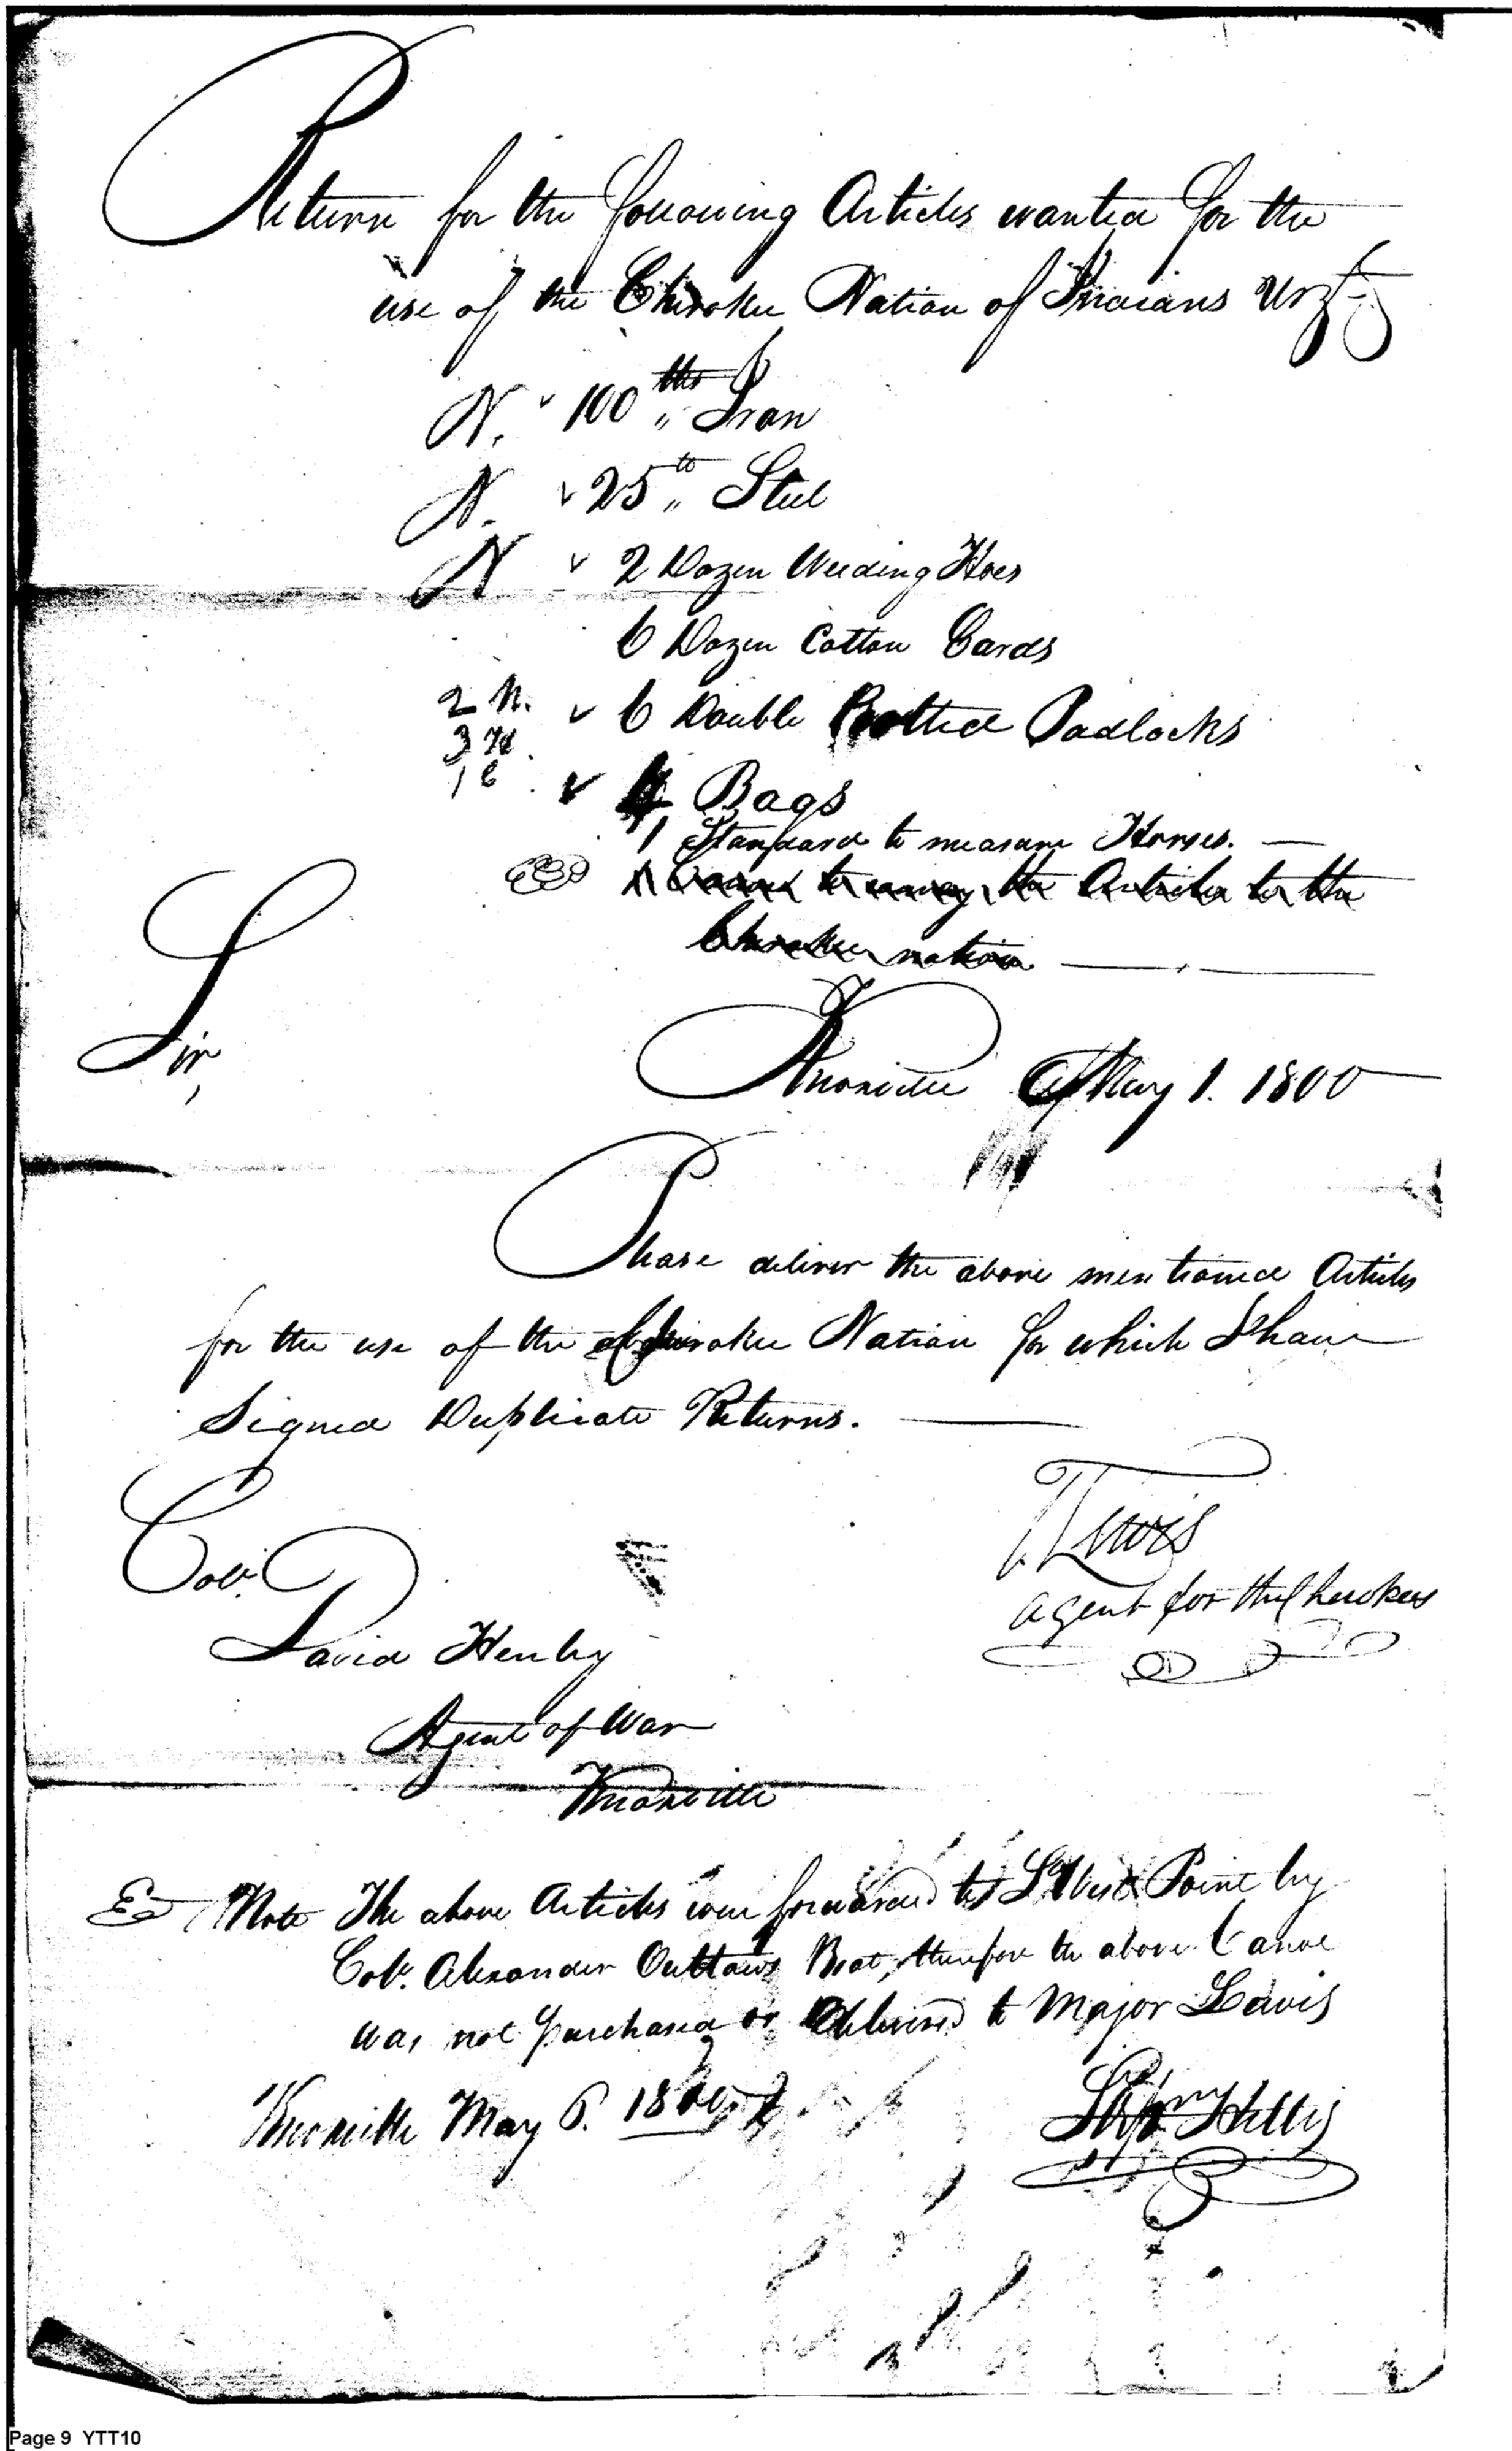 Return for the following Articles wanted for the
use of the Cherokee Nation of Indians Vizt
N. v 100 lbs " Iron
N. v 25 lb " Steel
N v 2 Dozen Weeding Hoes
6 Dozen Cotton Cards
2 N. v 6 Double Bolted Padlocks
3 H.
1 C. v 4 Bags
1 Standard to measure Horses. —
1 Canoe to convey the Articles to the
Cherokee nation
Sir,
Knoxville May 1. 1800
Please deliver the above mentioned Articles
for the use of the Cherokee Nation for which I have
Signed Duplicate Returns.
T Lewis
Agent for the Cherokees
Colo.
David Henley
Agent of War
Knoxville
Note The above Articles were forwarded to S West Point by
Colo. Alexander Outlaws Boat, therefore the above Canoe
was not purchased or delivered to Major Lewis
Knoxville May 6. 1800
Hillis
Page 9 YTT10